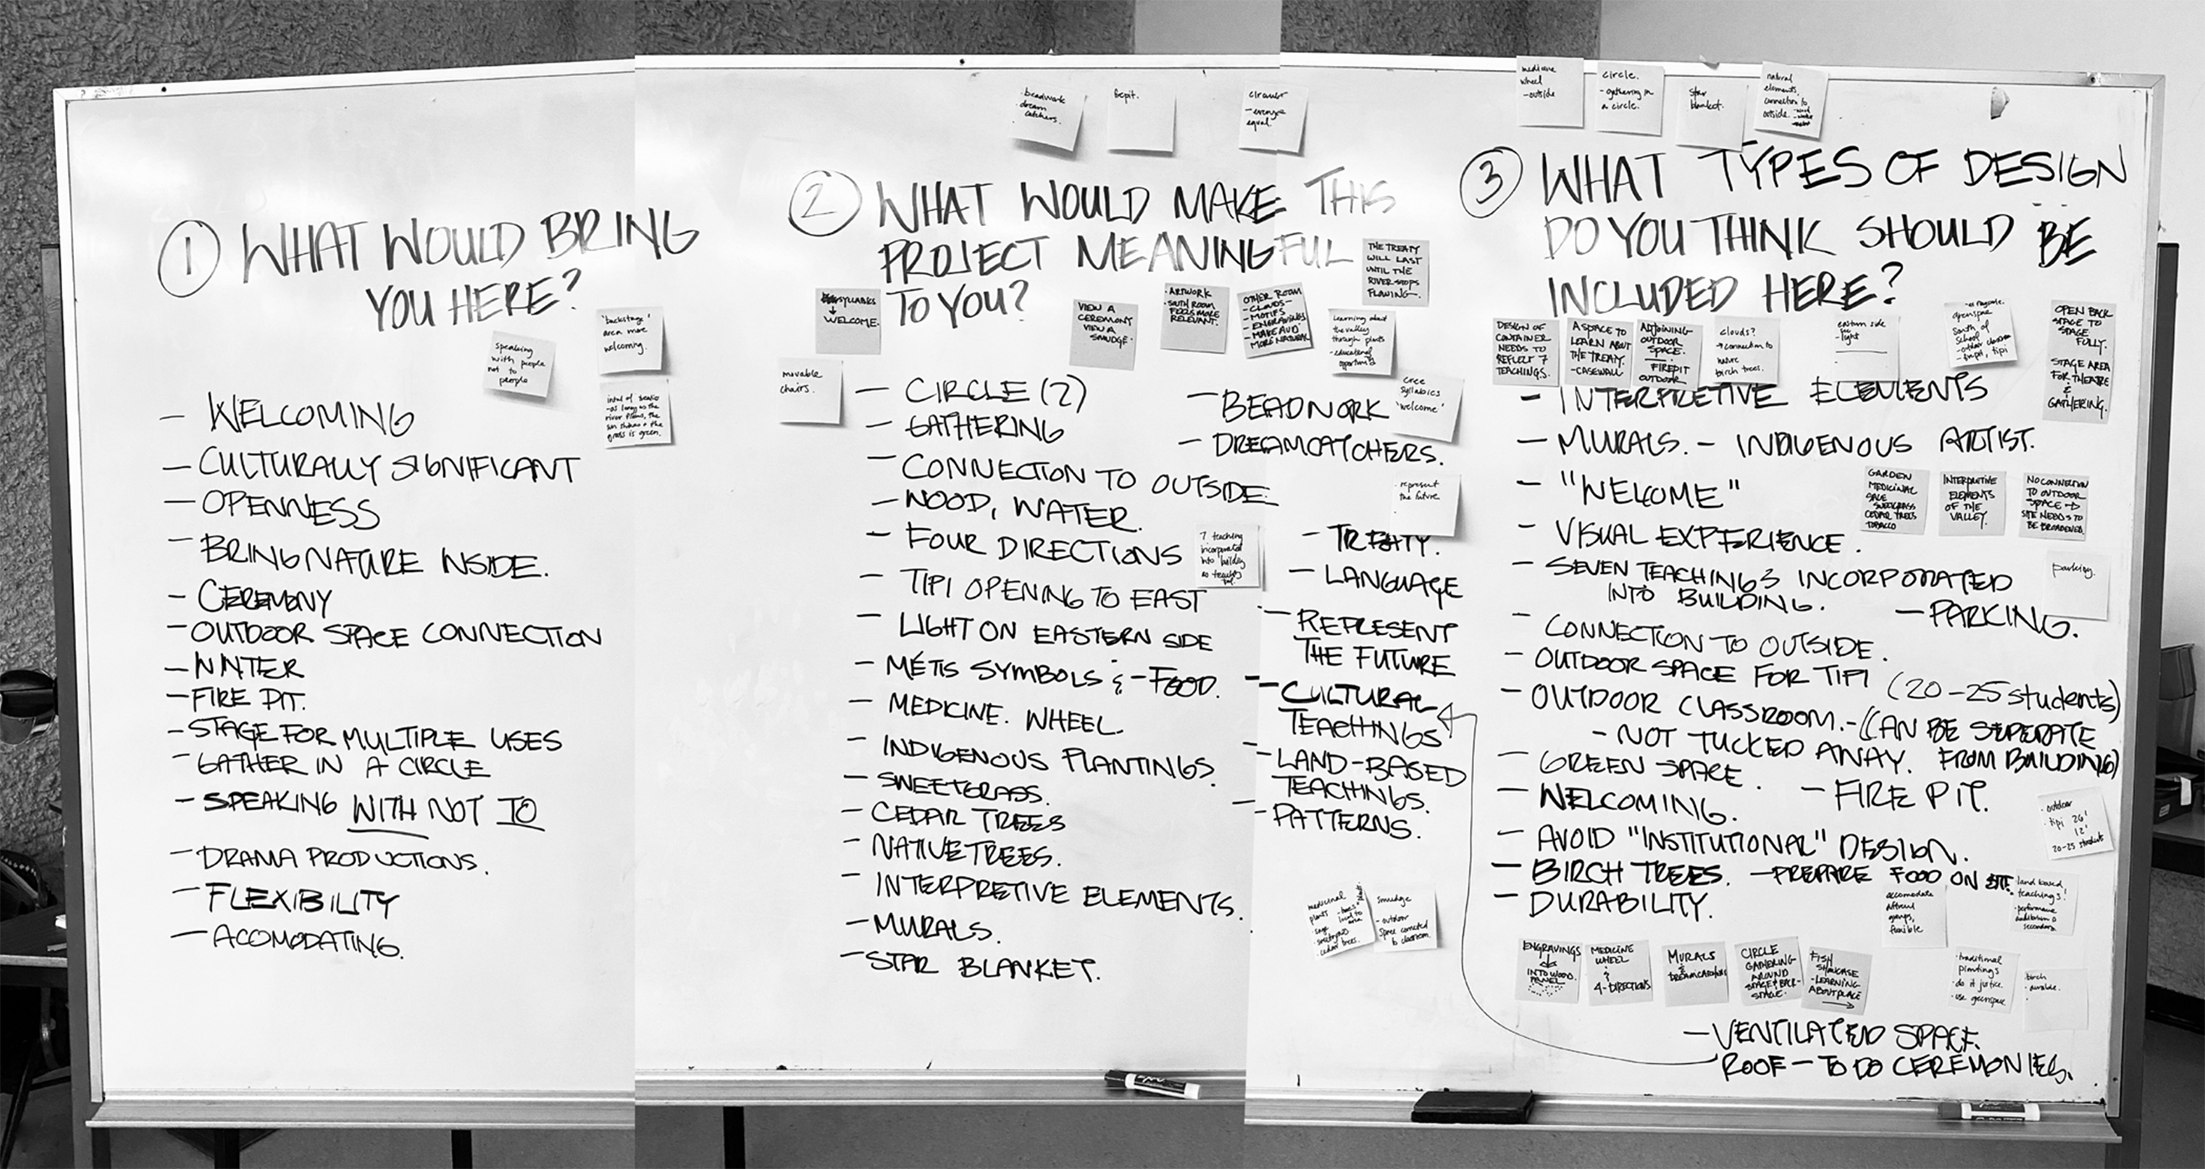 ① WHAT WOULD BRING
YOU HERE?
speaking
with people
not to
people
"backstage"
area more
welcoming.
- as long as the
river flows, the
sun shines & the
grass is green.
- WELCOMING
- CULTURALLY SIGNIFICANT
- OPENNESS
- BRING NATURE INSIDE.
- CEREMONY
- OUTDOOR SPACE CONNECTION
- WATER
- FIRE PIT.
- STAGE FOR MULTIPLE USES
- GATHER IN A CIRCLE
- SPEAKING WITH NOT TO
- DRAMA PRODUCTIONS.
- FLEXIBILITY
- ACOMODATING.
beadwork
dream
catchers.
firepit.
circular
- everyone
equal.
② WHAT WOULD MAKE THIS
PROJECT MEANINGFUL
TO YOU?
SYLLABICS
↓
WELCOME.
movable
chairs.
VIEW A
CEREMONY
VIEW A
SMUDGE.
- ARTWORK
- SOUTH ROOM
FEELS MORE
RELEVANT.
OTHER ROOM
- CLOUDS -
- MOTIFS
- ENGRAVINGS
- MAKE AUD
MORE NATURAL
THE TREATY
WILL LAST
UNTIL THE
RIVER STOPS
FLOWING.
Learning about
the valley
through plants
- educational
opportunities
cree
syllabics
"welcome"
- CIRCLE (2)
- GATHERING
- CONNECTION TO OUTSIDE.
- WOOD, WATER.
- FOUR DIRECTIONS
- TIPI OPENING TO EAST
- LIGHT ON EASTERN SIDE
- MÉTIS SYMBOLS & - FOOD.
- MEDICINE WHEEL
- INDIGENOUS PLANTINGS.
- SWEETGRASS.
- CEDAR TREES
- NATIVE TREES.
- INTERPRETIVE ELEMENTS.
- MURALS.
- STAR BLANKET.
- BEADWORK
- DREAMCATCHERS.
represent
the future.
7 teachings
incorporated
into building
as teaching
- TREATY.
- LANGUAGE
- REPRESENT
THE FUTURE
- CULTURAL
TEACHINGS
- LAND-BASED
TEACHINGS.
- PATTERNS.
medicinal
plants
- sage
- sweetgrass
- cedar trees.
smudge
- outdoor
space connected
to classroom.
medicine
wheel
- outside
circle.
- gathering in
a circle.
star
blanket.
natural
elements,
connection to
outside.
③ WHAT TYPES OF DESIGN
DO YOU THINK SHOULD BE
INCLUDED HERE?
DESIGN OF
CONTAINER
NEEDS TO
REFLECT 7
TEACHINGS.
A SPACE TO
LEARN ABOUT
THE TREATY.
- CASEWALL
ADJOINING
OUTDOOR
SPACE.
FIREPIT
OUTDOOR
clouds?
→ connection to
nature
birch trees.
eastern side
- light
greenspace
south of
school
- outdoor classroom
- firepit, tipi
OPEN BACK
STAGE TO
STAGE
FULLY.
STAGE AREA
FOR THEATRE
&
GATHERING.
- INTERPRETIVE ELEMENTS
- MURALS. - INDIGENOUS ARTIST.
- "WELCOME"
- VISUAL EXPERIENCE.
- SEVEN TEACHINGS INCORPORATED
INTO BUILDING. - PARKING.
- CONNECTION TO OUTSIDE.
- OUTDOOR SPACE FOR TIPI
- OUTDOOR CLASSROOM. - (20-25 students)
(CAN BE SEPERATE
- NOT TUCKED AWAY. FROM BUILDING)
- GREEN SPACE.
- WELCOMING. - FIRE PIT.
- AVOID "INSTITUTIONAL" DESIGN.
- BIRCH TREES. - PREPARE FOOD ON SITE.
- DURABILITY.
GARDEN
MEDICINAL
SAGE
SWEETGRASS
CEDAR TREES
TOBACCO
INTERPRETIVE
ELEMENTS
OF THE
VALLEY.
NO CONNECTION
TO OUTDOOR
SPACE →
SITE NEEDS TO
BE BROADENED.
parking.
- outdoor
- tipi 26'
12'
20-25 students
accomodate
different
groups,
flexible
- land based
teachings!
- performance
auditorium is
secondary
ENGRAVINGS
INTO WOOD
PANEL
MEDICINE
WHEEL
&
4-DIRECTIONS
MURALS
&
DREAMCATCHERS
CIRCLE
GATHERING
AROUND
STAGE & BACK-
STAGE.
FISH
SHOWCASE
- LEARNING
ABOUT PLACE
→
- traditional
plantings
- do it justice
- use greenspace
- birch
- durable.
- VENTILATED SPACE.
ROOF - TO DO CEREMONIES.